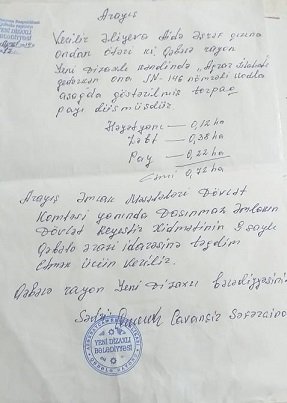 YENİ DİZAXLI
BƏLƏDİYYƏSİ
Arayış
Verilir Əliyeva Aidə Əşrəf qızına
ondan ötəri ki Qəbələ rayon
Yeni Dizaxlı kəndində "Aqrar İslahatı
gedərkən ona SN-146 nömrəli kodla
aşağıda göstərilmiş torpaq
payı düşmüşdür
Həyətyanı — 0,12 ha
— 0,38 ha
Pay — 0,22 ha
Cəmi 0,72 ha
Arayış Əmlak Məsələləri Dövlət
Komitəsi yanında Daşınmaz Əmlakın
Dövlət Reyestr Xidmətinin saylı
Qəbələ ərazi idarəsinə təqdim
etmək üçün verilir.
Qəbələ rayon Yeni Dizaxlı bələdiyyəsinin
Sədri Cavanşir Səfərzadə
YENİ DİZAXLI
BƏLƏDİYYƏSİ